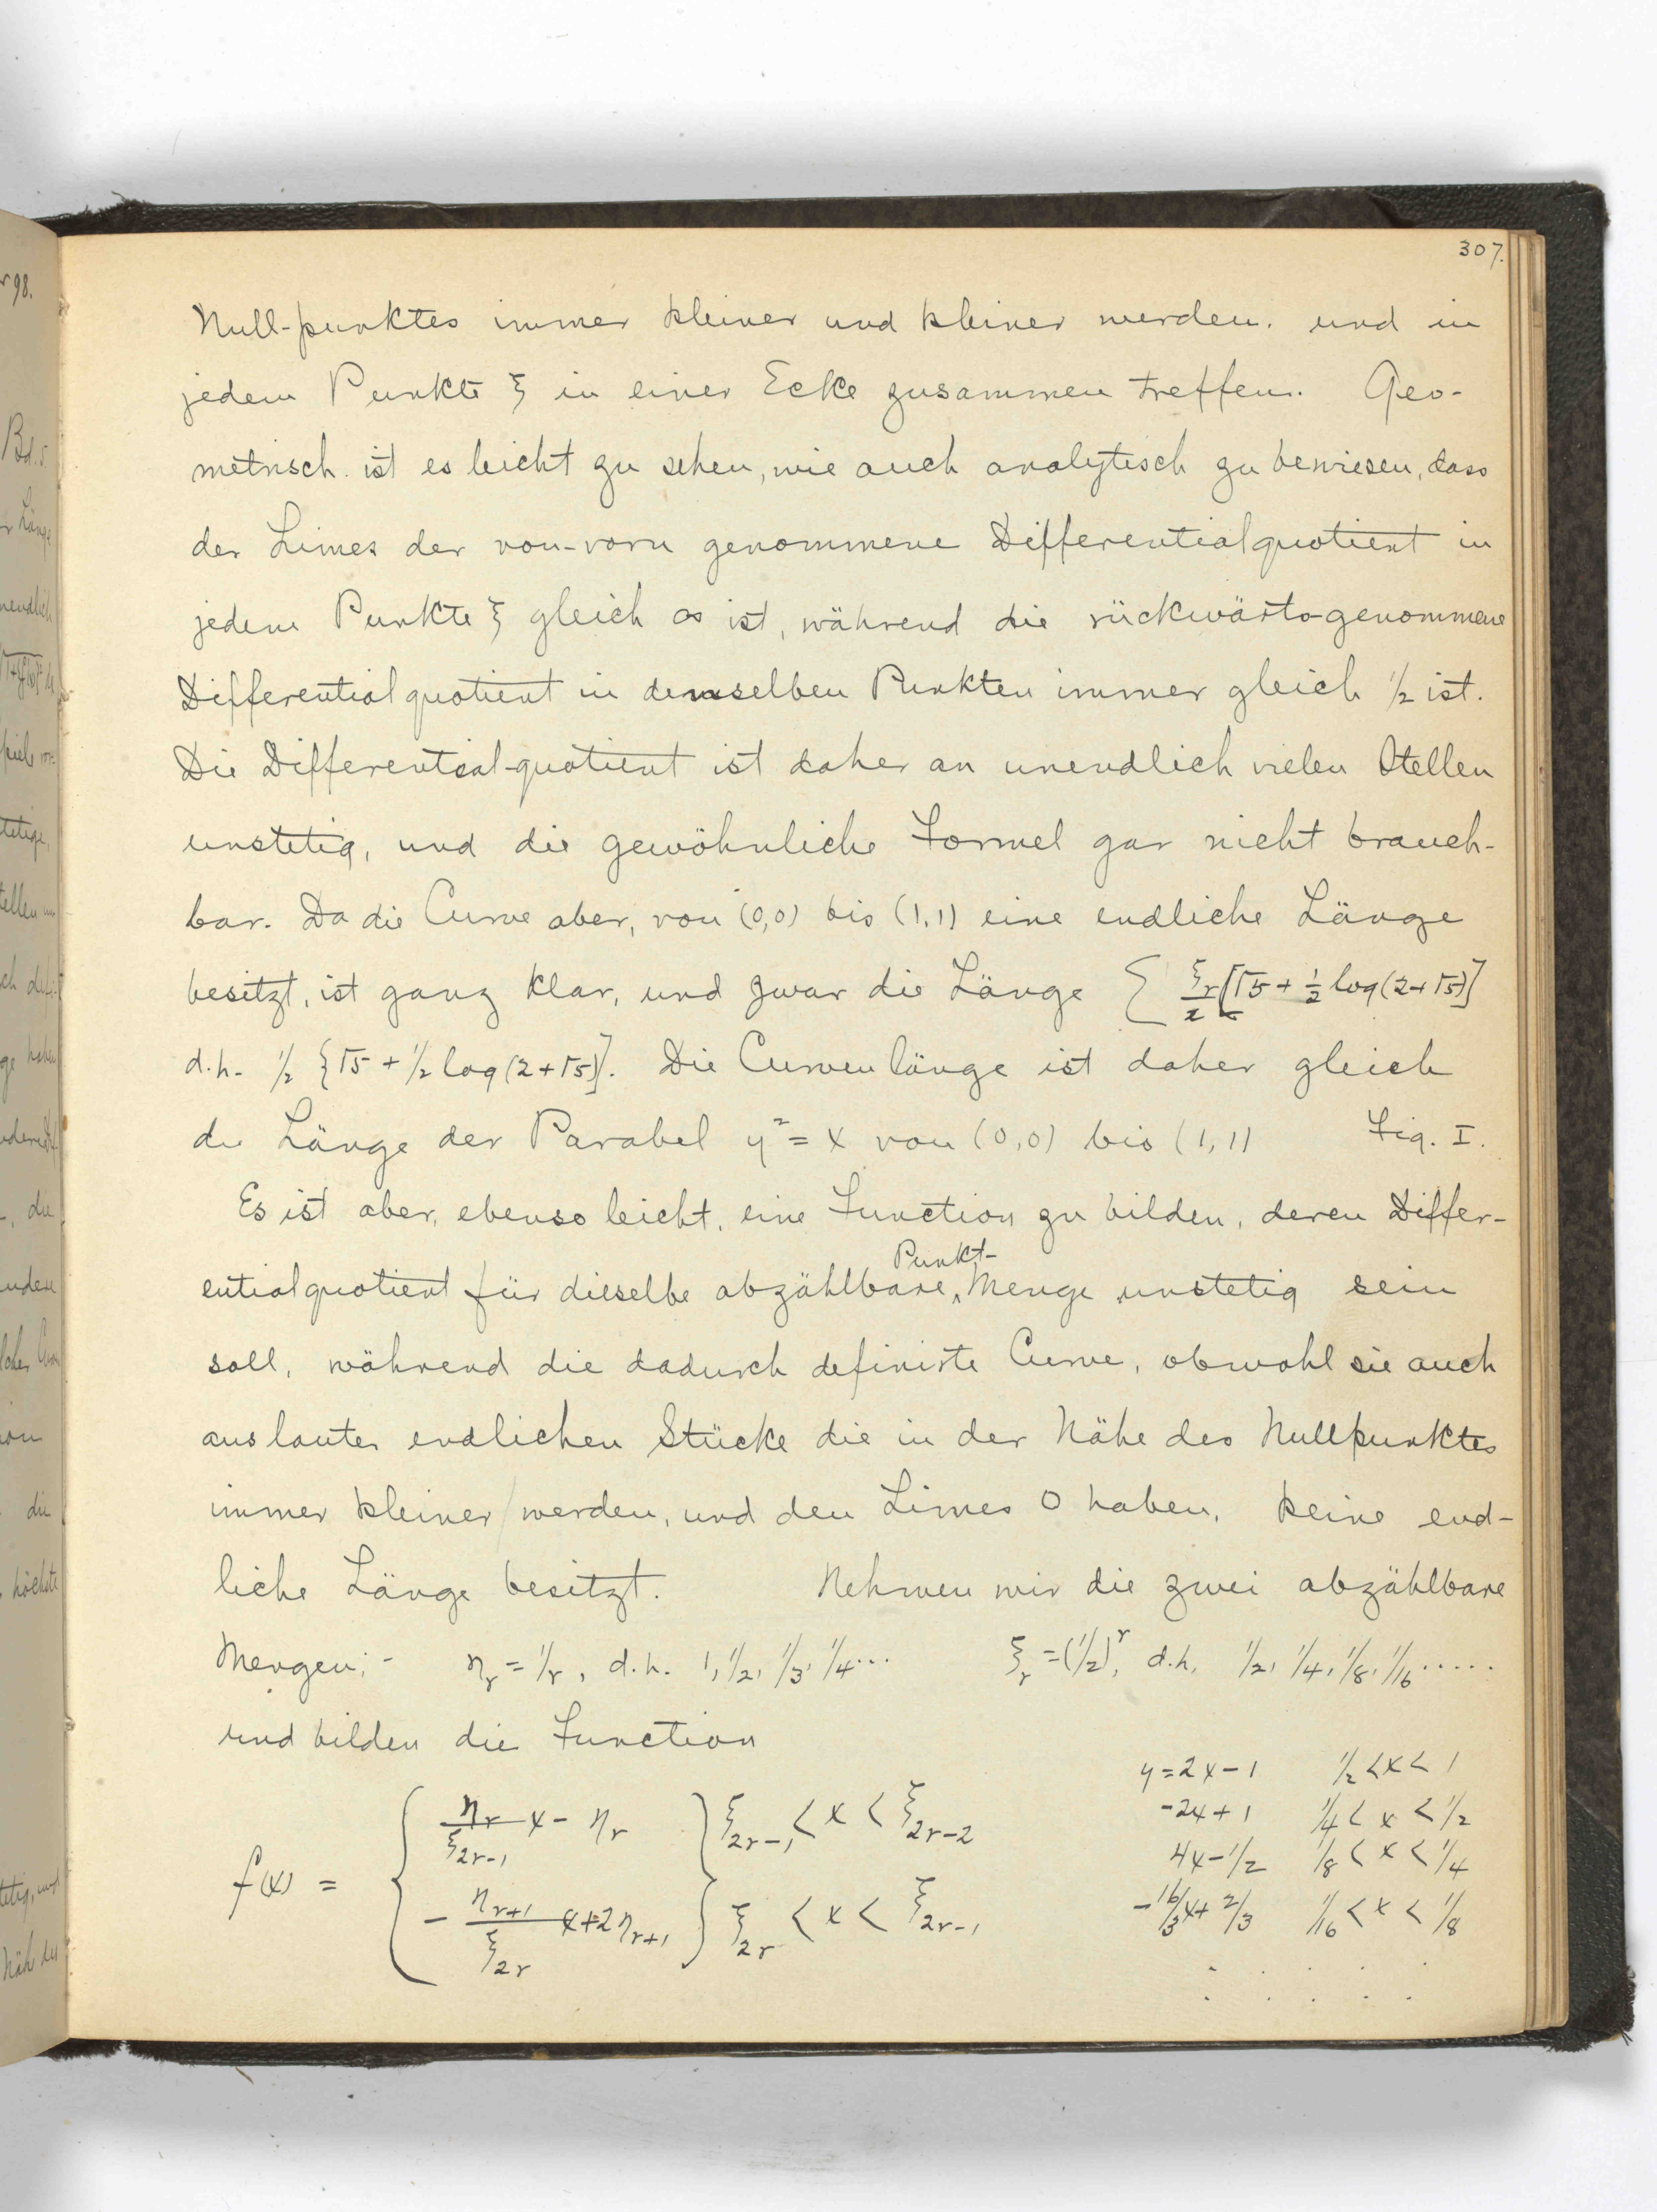 307.
Null-punktes immer kleiner und kleiner werden. und in
jedem Punkte ξ in einer Ecke zusammen treffen. Geo-
metrisch ist es leicht zu sehen, wie auch analytisch zu bewiesen, dass
der Limes der von-vorn genommene Differentialquotient in
jedem Punkte ξ gleich ∞ ist, während die rückwärts-genommene
Differentialquotient in demselben Punkten immer gleich 1/2 ist.
Die Differential-quotient ist daher an unendlich vielen Stellen
unstetig, und die gewöhnliche Formel gar nicht brauch-
bar. Da die Curve aber, von (0,0) bis (1,1) eine endliche Länge
besitzt, ist ganz klar, und zwar die Länge Σ ξr/2 [√5 + 1/2 log(2+√5)]
d.h. 1/2 {√5 + 1/2 log(2+√5)}. Die Curvenlänge ist daher gleich
die Länge der Parabel y² = x von (0,0) bis (1,1) Fig. I.
Es ist aber, ebenso leicht, eine Function zu bilden, deren Differ-
entialquotient für dieselbe abzählbare, Punkt- Menge unstetig sein
soll, während die dadurch definirte Curve, obwohl sie auch
aus lauter endlichen Stücke die in der Nähe des Nullpunktes
immer kleiner werden, und den Limes 0 haben, keine end-
liche Länge besitzt. Nehmen wir die zwei abzählbare
Mengen:- ηr = 1/r, d.h. 1, 1/2, 1/3, 1/4... ξr = (1/2)^r, d.h. 1/2, 1/4, 1/8, 1/16.....
und bilden die Function
f(x) = { ηr/ξ2r-1 x - ηr } ξ2r-1 < x < ξ2r-2
{ - ηr+1/ξ2r x + 2ηr+1 } ξ2r < x < ξ2r-1
y = 2x - 1 1/2 < x < 1
-2x + 1 1/4 < x < 1/2
4x - 1/2 1/8 < x < 1/4
-16/3 x + 2/3 1/16 < x < 1/8
. . . . .
. . . . .